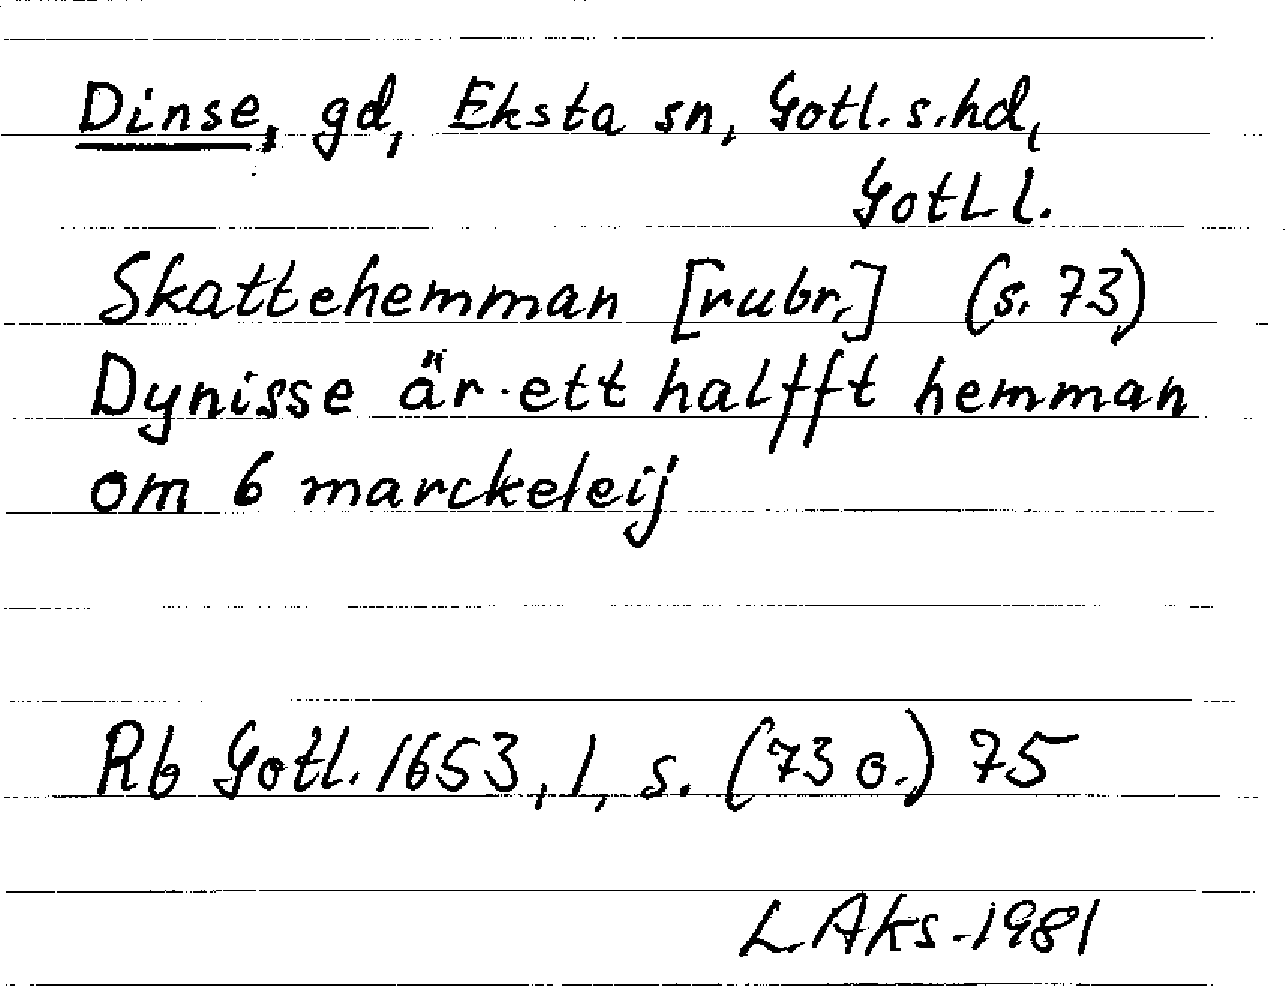 Dinse, gd, Eksta sn, Gotl. s. hd,
Gotl. l.
Skattehemman [rubr.] (s. 73)
Dynisse är ett halfft hemman
om 6 marckeleij
Rb Gotl. 1653, 1, s. (73 o.) 75
L Aks. 1981